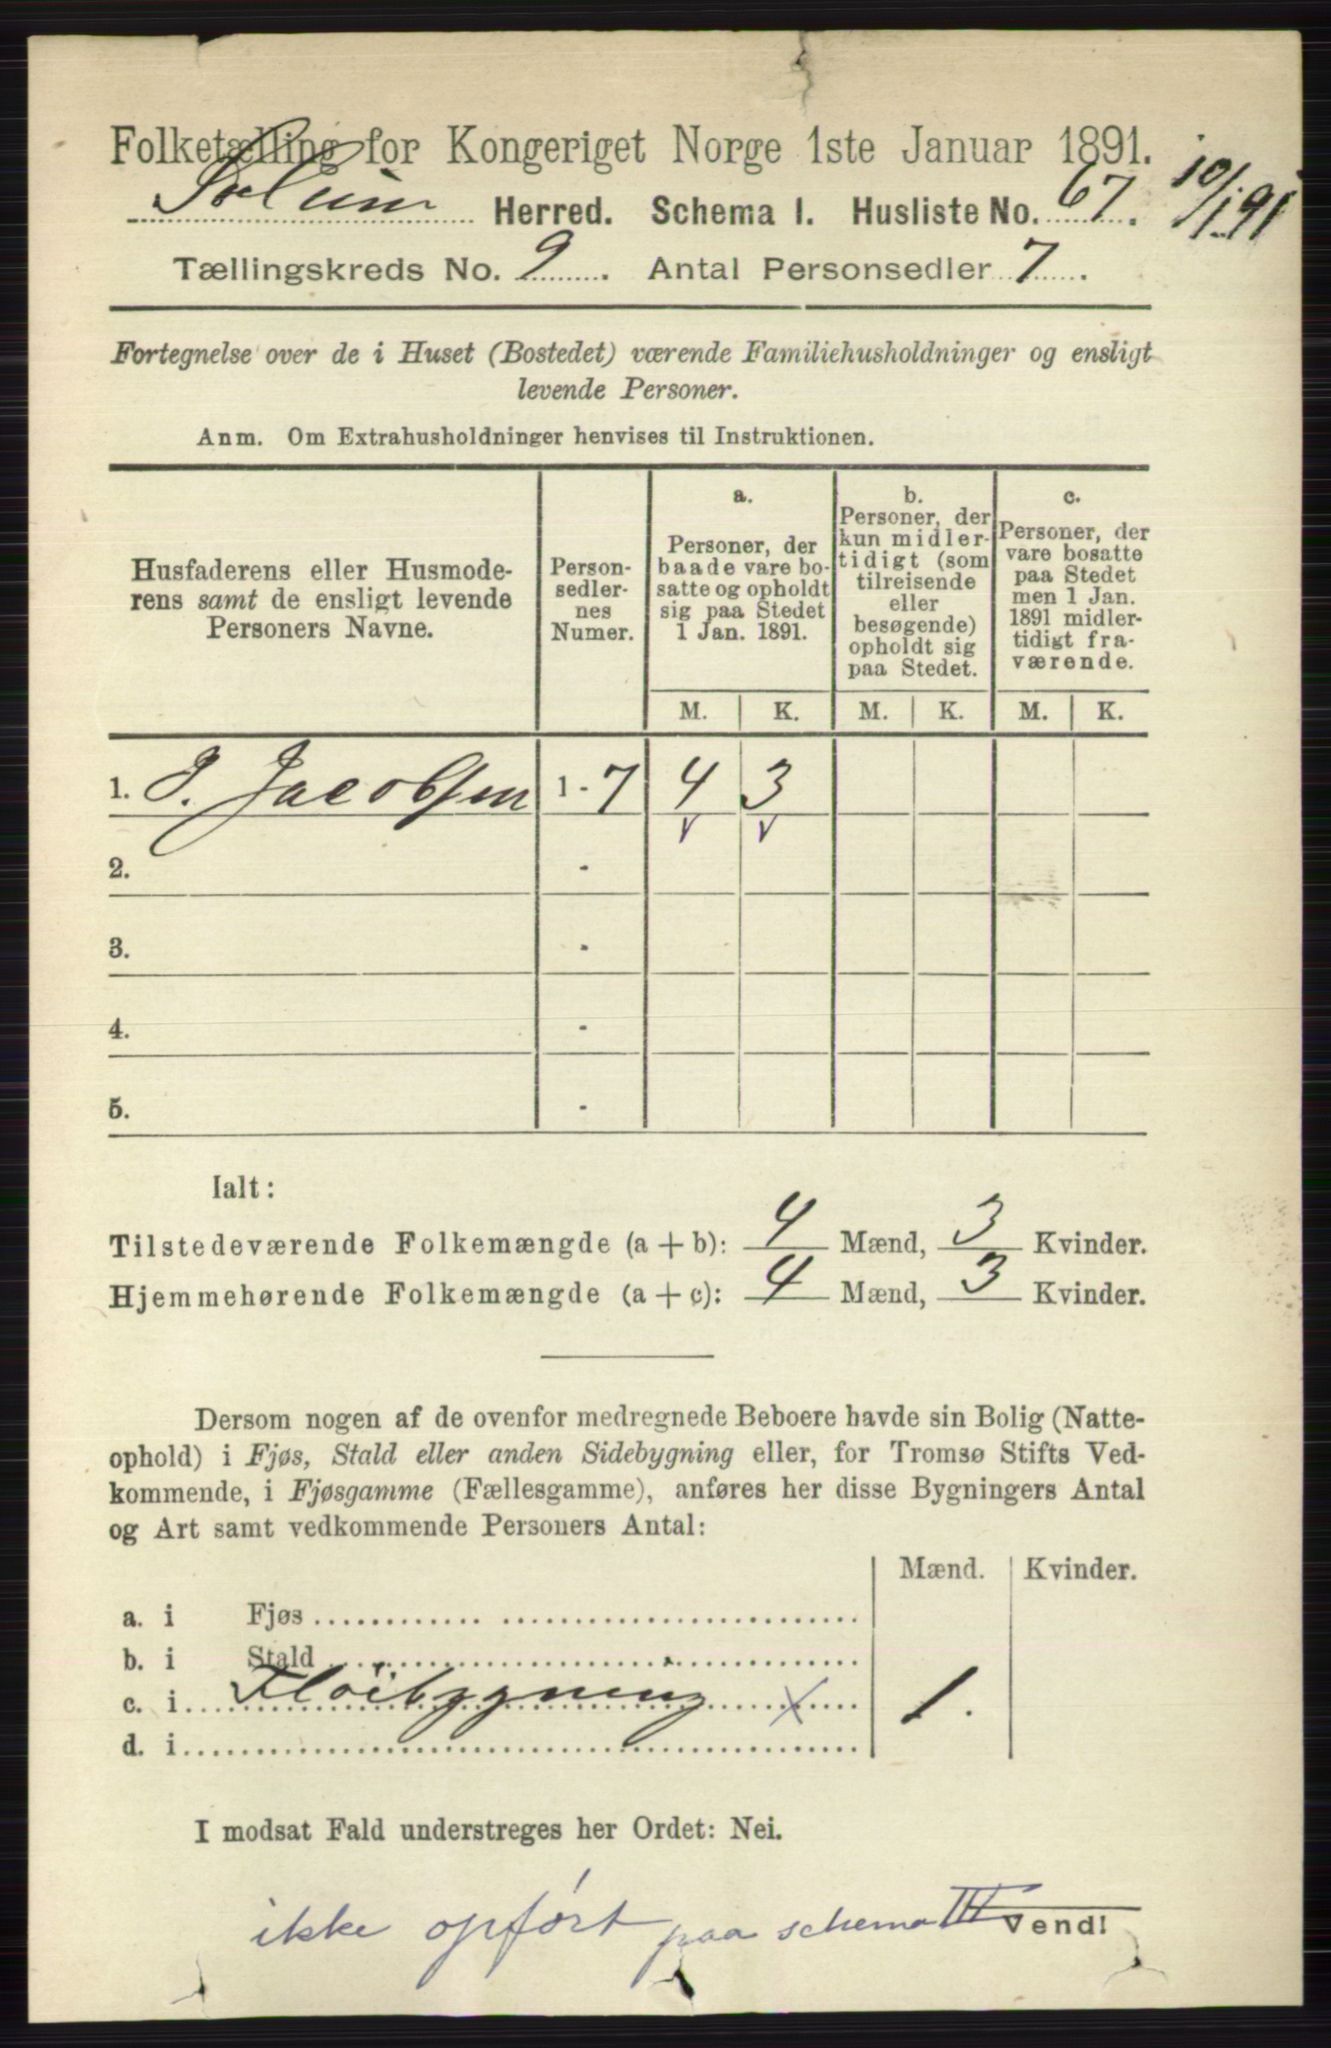 Folketælling for Kongeriget Norge 1ste Januar 1891.
Solum Herred. Schema I. Husliste No. 67. 10/1 91
Tællingskreds No. 9. Antal Personsedler 7.
Fortegnelse over de i Huset (Bostedet) værende Familiehusholdninger og ensligt
levende Personer.
Anm. Om Extrahusholdninger henvises til Instruktionen.
Husfaderens eller Husmode-
rens samt de ensligt levende
Personers Navne.
Person-
sedler-
nes
Numer.
a.
Personer, der
baade vare bo-
satte og opholdt
sig paa Stedet
1 Jan. 1891.
b.
Personer, der
kun midler-
tidigt (som
tilreisende
eller
besøgende)
opholdt sig
paa Stedet.
c.
Personer, der
vare bosatte
paa Stedet
men 1 Jan.
1891 midler-
tidigt fra-
værende.
M. K. M. K. M. K.
1. J. Jacobsen 1 - 7 4 3
2. -
3. -
4. -
5. -
Ialt:
Tilstedeværende Folkemængde (a + b): 4 Mænd, 3 Kvinder.
Hjemmehørende Folkemængde (a + c): 4 Mænd, 3 Kvinder.
Dersom nogen af de ovenfor medregnede Beboere havde sin Bolig (Natte-
ophold) i Fjøs, Stald eller anden Sidebygning eller, for Tromsø Stifts Ved-
kommende, i Fjøsgamme (Fællesgamme), anføres her disse Bygningers Antal
og Art samt vedkommende Personers Antal:
Mænd. Kvinder.
a. i Fjøs
b. i Stald
c. i Flöibygning x 1.
d. i
I modsat Fald understreges her Ordet: Nei.
ikke opført paa schema III
Vend!